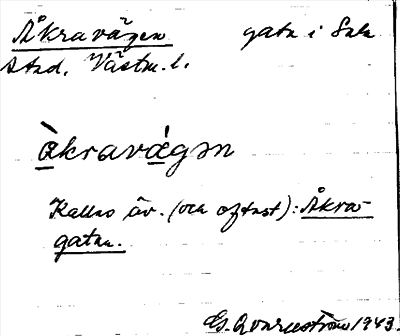 Åkravägen gata i Sala
stad, Västm. l.
àkravágən
Kallas äv. (och oftast): Åkra-
gatan.
G. Qvarnström 1943.